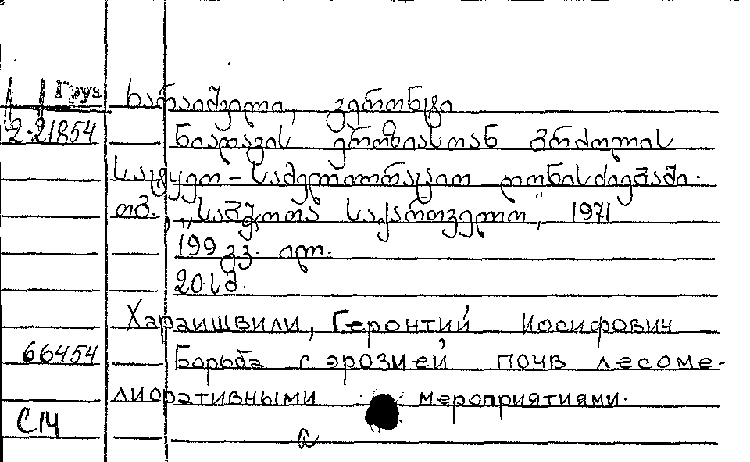 Груз ხარაიშვილი, გერონტი
2-21854 ნიადაგის ეროზიასთან ბრძოლის
სატყეო-სამელიორაციო ღონისძიებანი.
თბ. „საბჭოთა საქართველო", 1971
199 გვ. ილ.
20 სმ.
Хараишвили, Геронтий Иосифович
66454 Борьба с эрозией почв лесоме-
лиоративными мероприятиями.